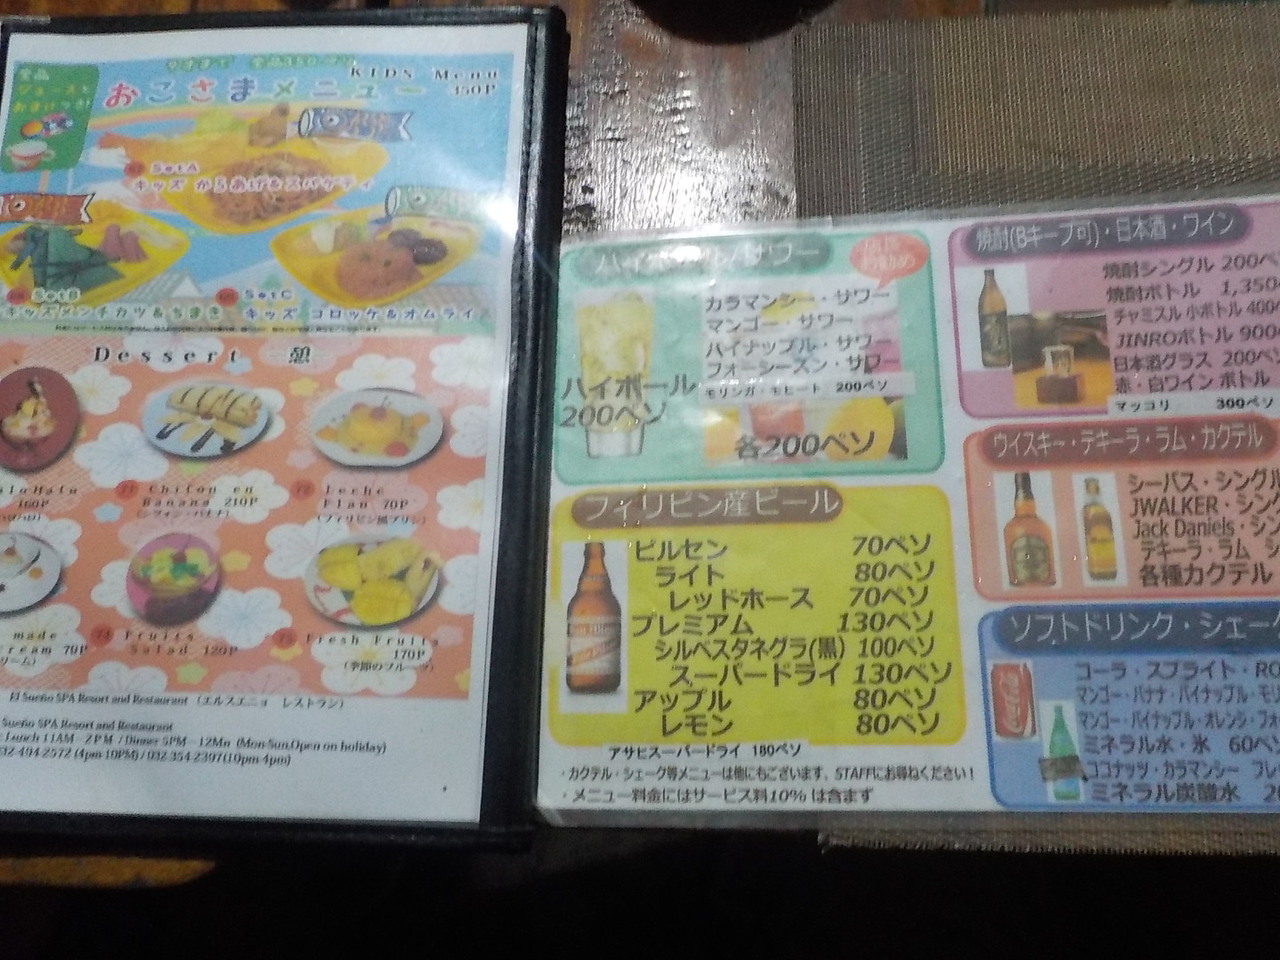 全品
ジュースと
おまけつき!
KIDS Menu
おこさまメニュー 350P
SetA
キッズ からあげ&スパゲティ
SetB
キッズメンチカツ&ちまき
SetC
キッズ コロッケ&オムライス
Dessert 憩
160P
71 Chifon en
Banana 210P
72 Leche
Flan 70P
(フィリピン風プリン)
made
cream 70P
74 Fruits
Salad 120P
75 Fresh Fruits
170P
(季節のフルーツ)
El Sueño SPA Resort and Restaurant (エルスエニョ レストラン)
Sueño SPA Resort and Restaurant
: Lunch 11AM - 2PM / Dinner 5PM - 12Mn (Mon-Sun.Open on holiday)
032-494-2572 (4pm-10PM) / 032-354-2397(10pm-4pm)
ハイボール/サワー
店長
お勧め
カラマンシー・サワー
マンゴー・サワー
パイナップル・サワー
フォーシーズン・サワー
モリンガ・モヒート 200ペソ
ハイボール
200ペソ
各200ペソ
フィリピン産ビール
ピルセン 70ペソ
ライト 80ペソ
レッドホース 70ペソ
プレミアム 130ペソ
シルベスタネグラ(黒) 100ペソ
スーパードライ 130ペソ
アップル 80ペソ
レモン 80ペソ
アサヒスーパードライ 180ペソ
・カクテル・シェーク等メニューは他にもございます、STAFFにお尋ねください!
・メニュー料金にはサービス料10% は含まず
焼酎(Bキープ可)・日本酒・ワイン
焼酎シングル 200ペ
焼酎ボトル 1,350
チャミスル 小ボトル 400
JINROボトル 900
日本酒グラス 200ペ
赤・白ワイン ボトル
マッコリ 300ペソ
ウイスキー・テキーラ・ラム・カクテル
シーバス・シングル
JWALKER・シン
Jack Daniels・シン
テキーラ・ラム シ
各種カクテル
ソフトドリンク・シェー
コーラ・スプライト・RO
マンゴー・バナナ・パイナップル・モ
マンゴー・パイナップル・オレンジ・フォ
ミネラル水・氷 60ペ
ココナッツ・カラマンシー フレ
ミネラル炭酸水 20
Coca-Cola